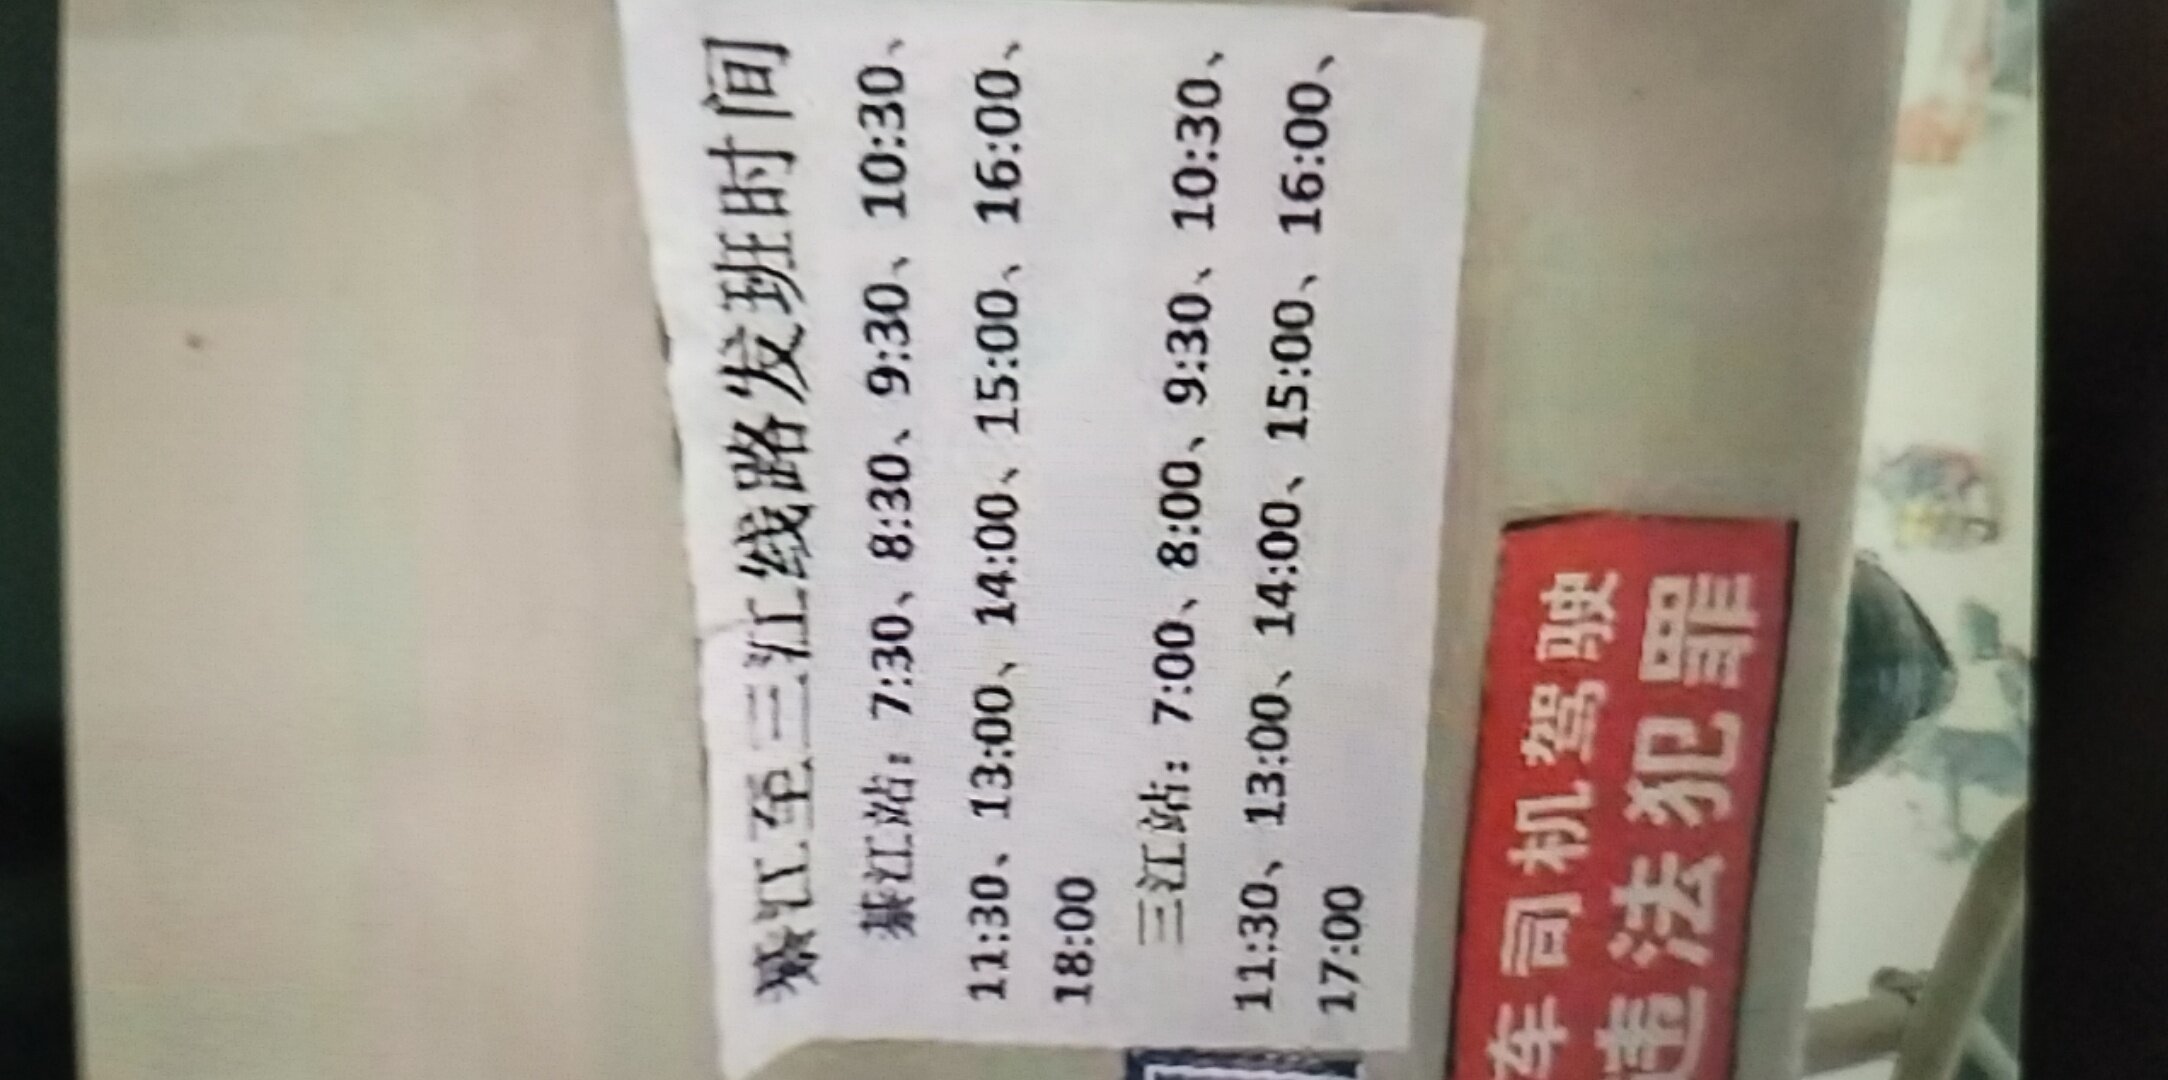 綦江至三江线路发班时间
綦江站：7:30、8:30、9:30、10:30、
11:30、13:00、14:00、15:00、16:00、
18:00
三江站：7:00、8:00、9:30、10:30、
11:30、13:00、14:00、15:00、16:00、
17:00
车司机驾驶
违法犯罪